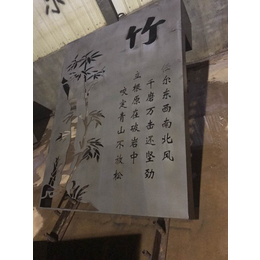 竹
咬定青山不放松
立根原在破岩中
千磨万击还坚劲
任尔东西南北风